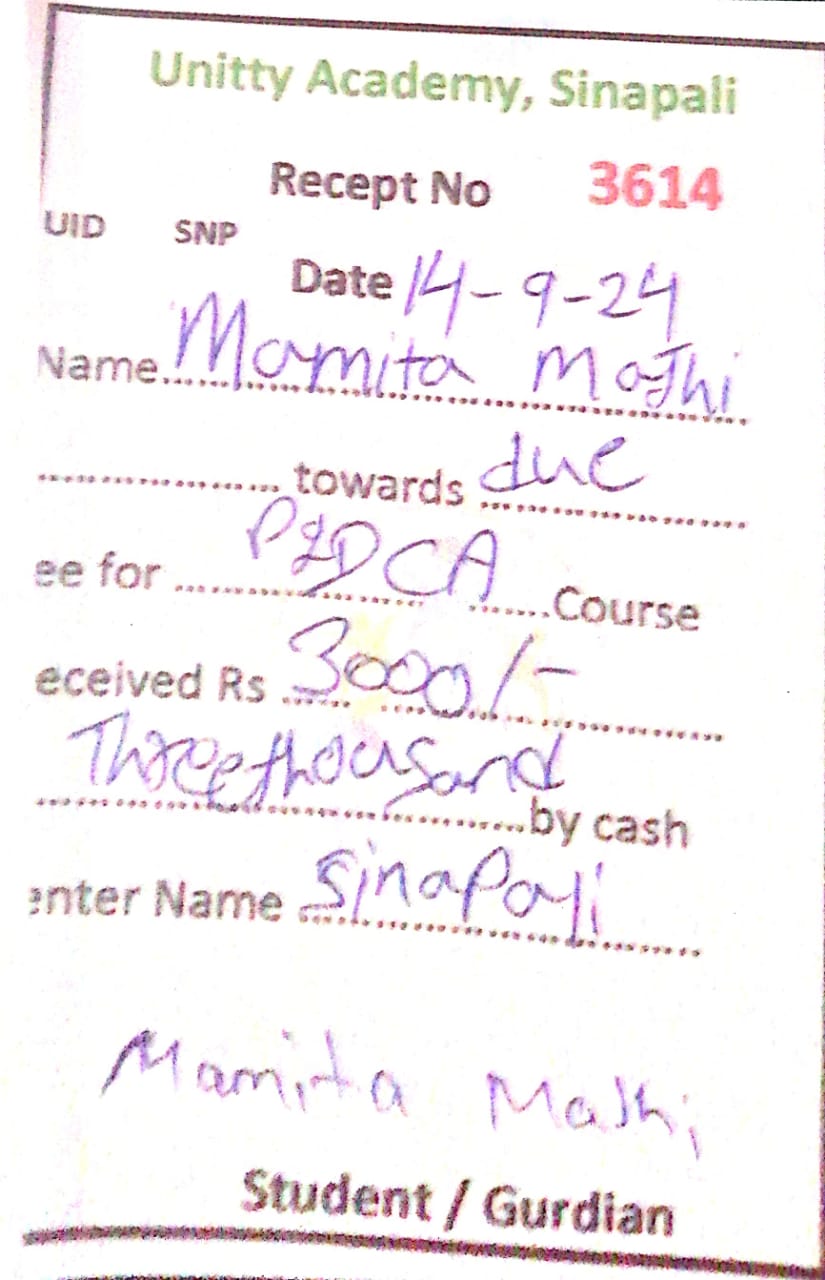 Unitty Academy, Sinapali
Recept No 3614
UID SNP
Date 14-9-24
Name Mamita Majhi
towards due
ee for PGDCA Course
eceived Rs 3000/-
Threethousand
by cash
enter Name Sinapali
Mamita Majhi
Student / Gurdian